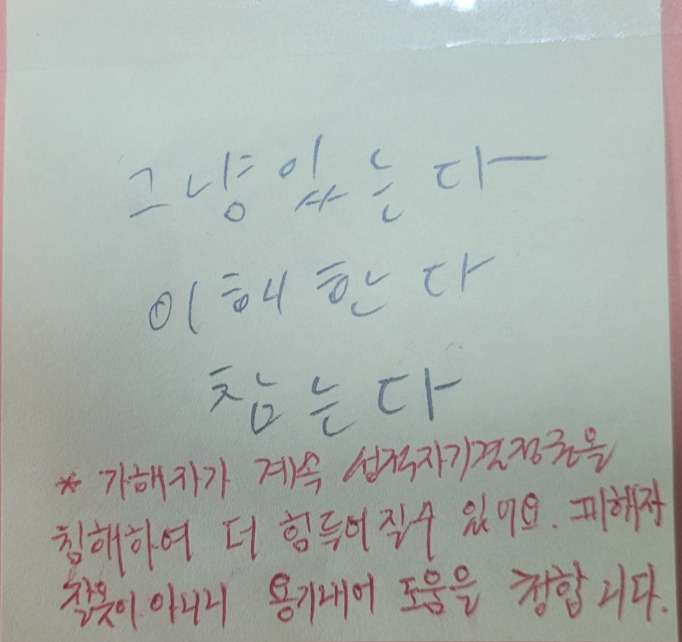 그냥있는다
이해한다
참는다
* 가해자가 계속 성적자기결정권을
침해하여 더 힘들어질수 있어요. 피해자
잘못이 아니니 용기내어 도움을 청합니다.